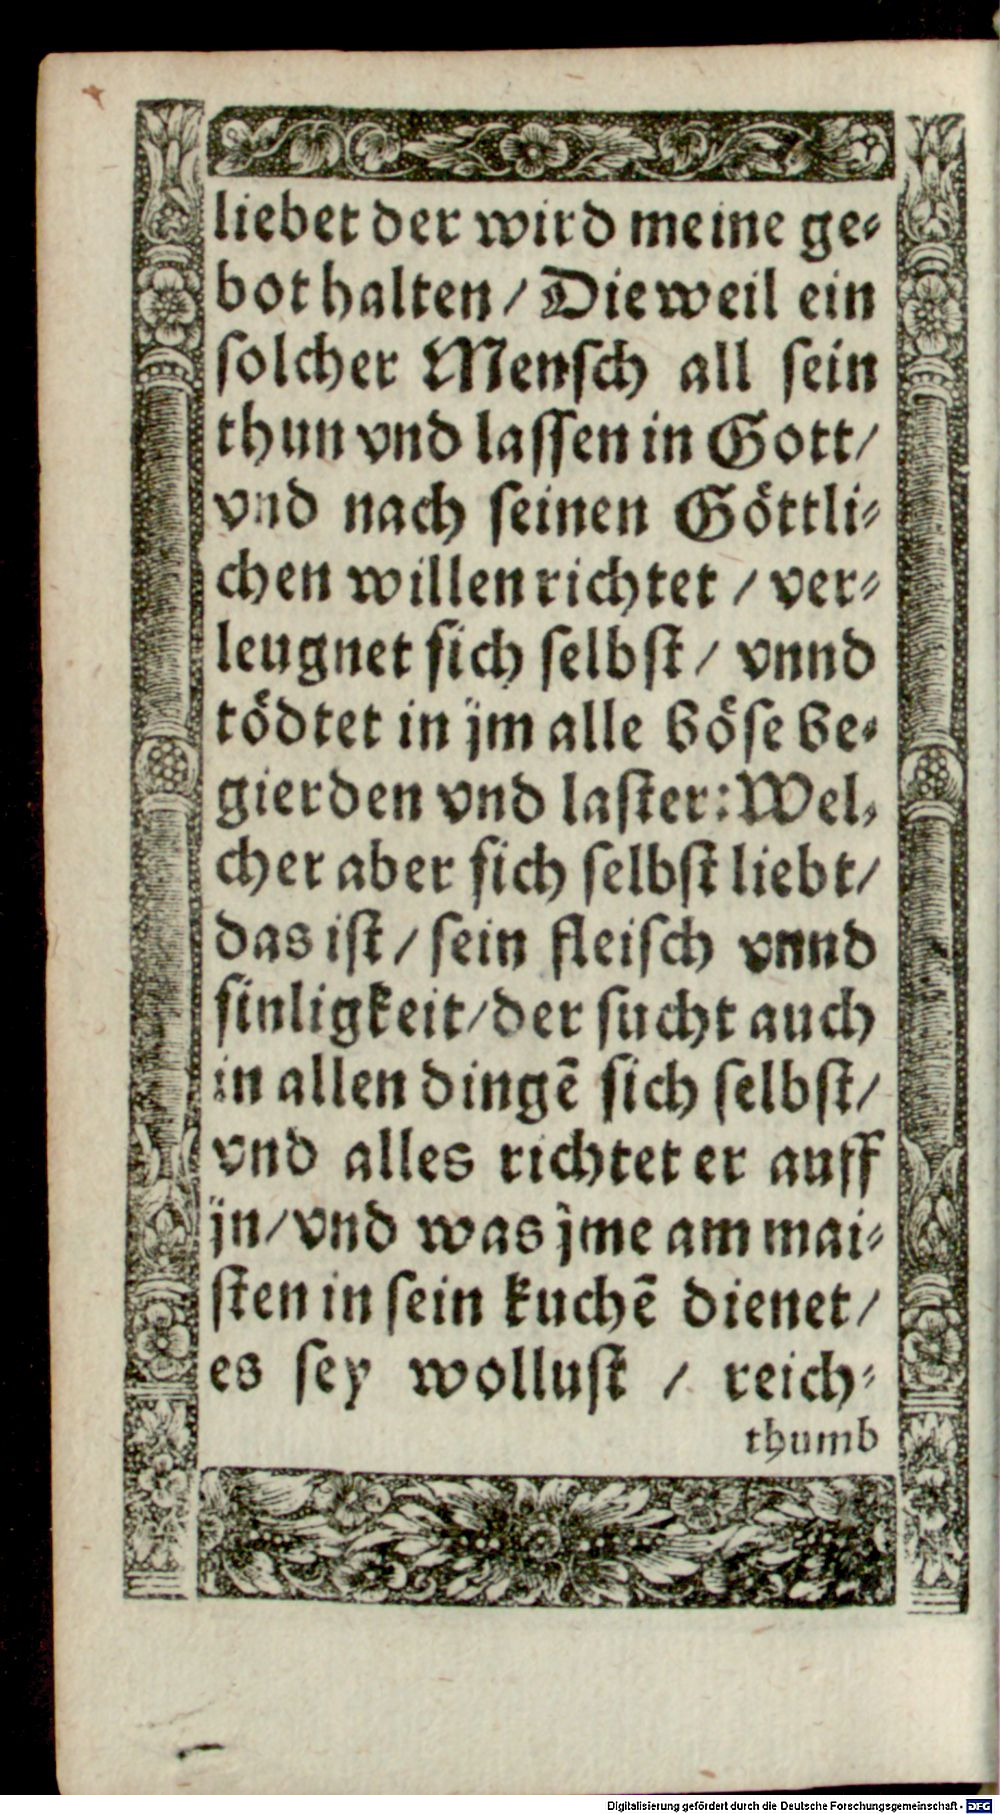 liebet der wird meine ge⸗
bot halten / Dieweil ein
solcher Mensch all sein
thun vnd lassen in Gott /
vnd nach seinen Göttli⸗
chen willen richtet / ver⸗
leugnet sich selbst / vnnd
tödtet in jm alle böse be⸗
gierden vnd laster: Wel⸗
cher aber sich selbst liebt /
das ist / sein fleisch vnnd
sinligkeit / der sucht auch
in allen dingē sich selbst /
vnd alles richtet er auff
jn / vnd was jme am mai⸗
sten in sein kuchē dienet /
es sey wollust / reich⸗
thumb
Digitalisierung gefördert durch die Deutsche Forschungsgemeinschaft - DFG